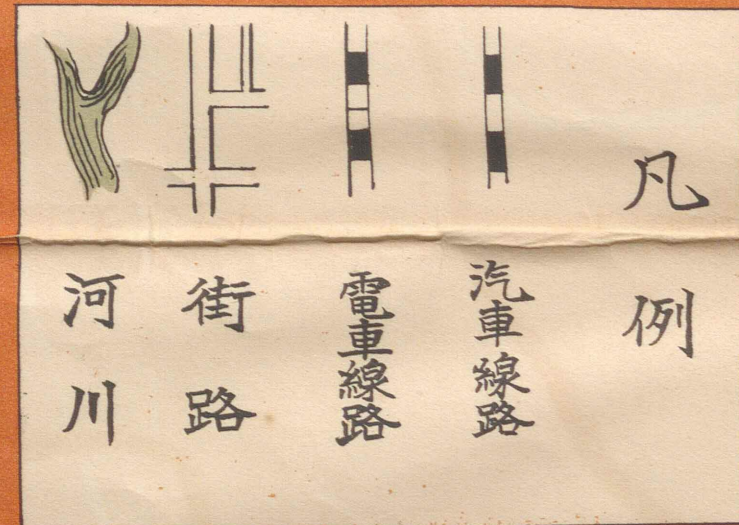 凡例
汽車線路
電車線路
街路
河川